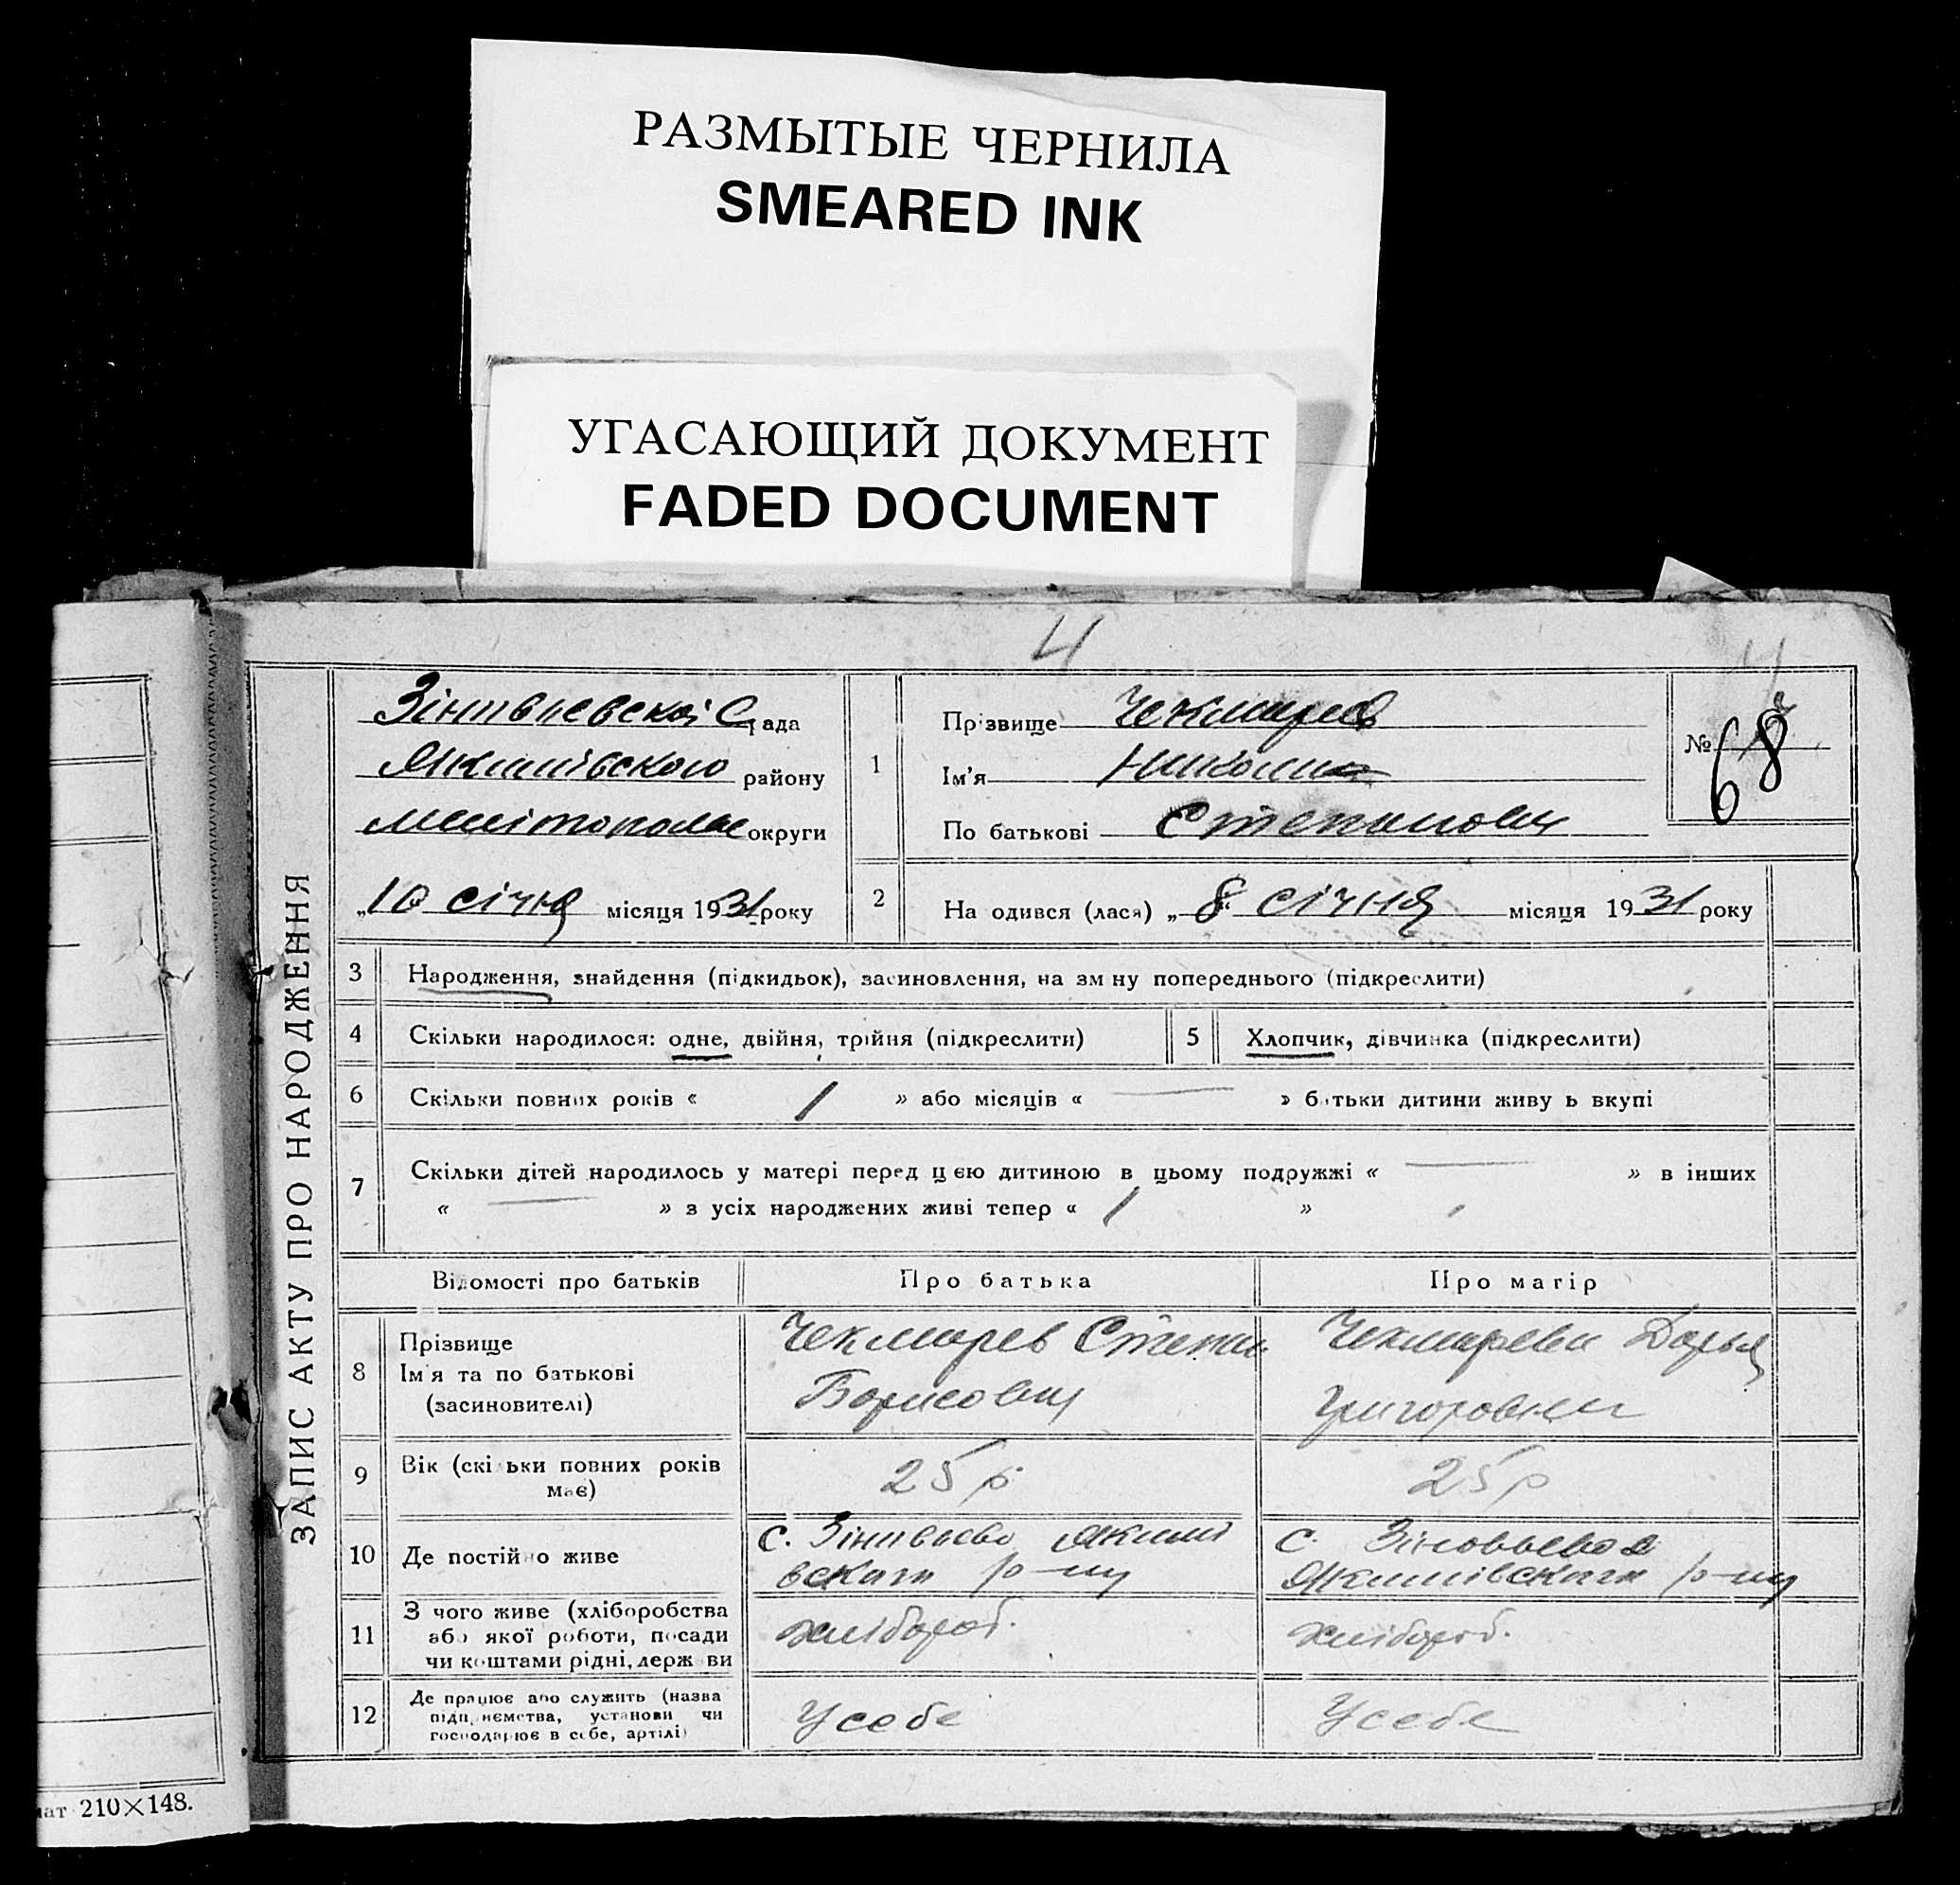 РАЗМЫТЫЕ ЧЕРНИЛА
SMEARED INK
УГАСАЮЩИЙ ДОКУМЕНТ
FADED DOCUMENT
4
4
ЗАПИС АКТУ ПРО НАРОДЖЕННЯ
рада
Якимівского району
округи
„10 січня місяця 1931 року
1
Прізвище Чекмарев
Ім'я
По батькові Степанович
№ 68
2
На одився (лася) „8“ січня місяця 1931 року
3 Народження, знайдення (підкидьок), засиновлення, на зм ну попереднього (підкреслити)
4 Скільки народилося: одне, двійня, трійня (підкреслити)
5 Хлопчик, дівчинка (підкреслити)
6 Скільки повних років « 1 » або місяців « — » батьки дитини живу ь вкупі
7 Скільки дітей народилось у матері перед цією дитиною в цьому подружжі « — » в інших
« — » з усіх народжених живі тепер « 1 »
Відомості про батьків Про батька Про матір
8 Прізвище
Ім'я та по батькові
(засиновителі)
Чекмарев Степан
Борисович
Чекмарева Дарья
Григоровна
9 Вік (скі ьки повних років
має)
25 р.
25 р
10 Де постійно живе
с. Якимі
вскаго р-ну
с. Зіновьево
Якимівскаго р-ну
11 З чого живе (хліборобства
або якої роботи, посади
чи коштами рідні, держ ви
хлібороб.
хлібороб.
12 Де працює або служить (назва
підприємства, установи чи
господарює в себе, артілі)
У себе
У себе
мат 210×148.